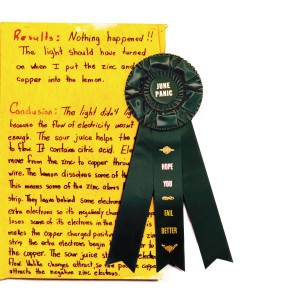 Results: Nothing happened!!
The light should have turned
on when I put the zinc and
copper into the lemon.
Conclusion: The light didn't lig
because the flow of electricity wasn't
enough. The sour juice helps the
to flow It contains citric acid. Ele
move from the zinc to copper throu
wire. The lemon dissolves some of
This means some of the zinc atoms
strip. They leave behind some electrons
extra electrons so its negatively charg
loses some of its electrons in the
makes the copper charged positive
strip the extra electrons begin
the copper. The sour juice
flow. Unlike charges attract so the
attracts the negative zinc electrons.
JUNE
PANIC
HOPE
YOU
FAIL
BETTER